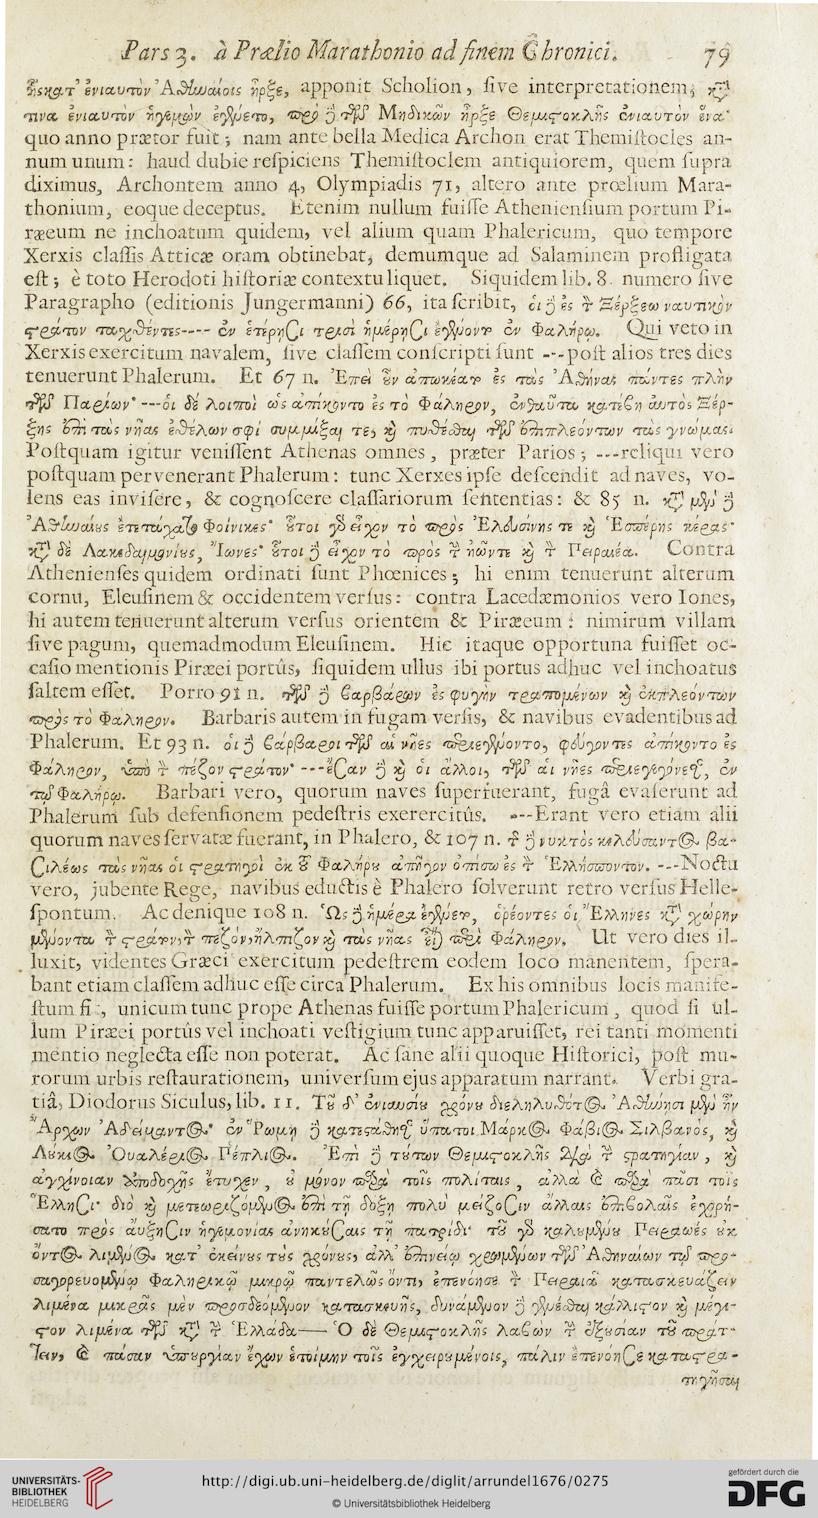 Pars 3. à Prælio Marathonio ad finem Chronici. 79
ἐνιαυτὸν Ἀθηναίοις ἦρξε, apponit Scholion, ſive interpretationem, κατὰ
τινα ἐνιαυτὸν ἡγεμὼν ἐγένετο, πρὸ δὲ τῶν Μηδικῶν ἦρξε Θεμιςοκλῆς ἐνιαυτὸν ἕνα·
quo anno prætor fuit; nam ante bella Medica Archon erat Themiſtocles an-
num unum: haud dubie reſpiciens Themiſtoclem antiquiorem, quem ſupra
diximus, Archontem anno 4, Olympiadis 71, altero ante prœlium Mara-
thonium, eoque deceptus. Etenim nullum fuiſſe Athenienſium portum Pi-
ræeum ne inchoatum quidem, vel alium quam Phalericum, quo tempore
Xerxis claſſis Atticæ oram obtinebat, demumque ad Salaminem profligata
eſt; è toto Herodoti hiſtoriæ contextu liquet. Siquidem lib. 8. numero ſive
Paragrapho (editionis Jungermanni) 66, ita ſcribit, οἱ δὲ ἐς τὸν Ξέρξεω ναυτικὸν
ςρατὸν ταχθέντες---- ἐν ἑτέρηςι τρισὶ ἡμέρηςι ἐγένοντο ἐν Φαλήρῳ. Qui veto in
Xerxis exercitum navalem, ſive claſſem conſcripti ſunt ---poſt alios tres dies
tenuerunt Phalerum. Et 67 n. Ἐπεὶ ὦν ἀπικέατο ἐς τὰς Ἀθήνας πάντες πλὴν
τῶν Παρίων· ---οἱ δὲ λοιποὶ ὡς ἀπίκοντο ἐς τὸ Φάληρον, ἐνθαῦτα κατέβη αὐτὸς Ξέρ-
ξης ἐπὶ τὰς νῆας ἐθέλων σφι συμμίξαι τε, καὶ πυθέσθαι τῶν ἐπιπλεόντων τὰς γνώμας.
Poſtquam igitur veniſſent Athenas omnes, præter Parios; ---reliqui vero
poſtquam pervenerant Phalerum: tunc Xerxes ipſe deſcendit ad naves, vo-
lens eas inviſere, & cognoſcere claſſariorum ſententias: & 85 n. κατὰ μὲν δὴ
Ἀθηναίους ἐτετάχατο Φοίνικες· οὗτοι γὰρ εἶχον τὸ πρὸς Ἐλευσίνης τε καὶ Ἑσπέρης κέρας·
κατὰ δὲ Λακεδαιμονίους, Ἴωνες· οὗτοι δὲ εἶχον τὸ πρὸς τὴν ἠῶ τε καὶ τὸν Πειραιέα. Contra
Athenienſes quidem ordinati ſunt Phœnices; hi enim tenuerunt alterum
cornu, Eleuſinem & occidentem verſus: contra Lacedæmonios vero Iones,
hi autem tenuerunt alterum verſus orientem & Piræeum: nimirum villam
ſive pagum, quemadmodum Eleuſinem. Hic itaque opportuna fuiſſet oc-
caſio mentionis Piræei portûs, ſiquidem ullus ibi portus adhuc vel inchoatus
ſaltem eſſet. Porro 91 n. τῶν δὲ βαρβάρων ἐς φυγὴν τραπομένων καὶ ἐκπλεόντων
πρὸς τὸ Φάληρον. Barbaris autem in fugam verſis, & navibus evadentibus ad
Phalerum. Et 93 n. οἱ δὲ βάρβαροι τῶν αἱ νῆες περιεγένοντο, φεύγοντες ἀπίκοντο ἐς
Φάληρον, ὑπὸ τὸν πέζον ςρατόν· ---ἔςαν δὲ καὶ οἱ ἄλλοι, τῶν αἱ νῆες περιεγεγόνεσαν, ἐν
τῷ Φαλήρῳ. Barbari vero, quorum naves ſuperfuerant, fugâ evaſerunt ad
Phalerum ſub defenſionem pedeſtris exerercitûs. ---Erant vero etiam alii
quorum naves ſervatæ fuerant, in Phalero, & 107 n. τῆς δὲ νυκτὸς κελεύσαντος βα-
ςιλέως τὰς νῆας οἱ ςρατηγοὶ ἐκ τοῦ Φαλήρου ἀπῆγον ὀπίσω ἐς τὸν Ἑλλήσποντον. ---Noctu
vero, jubente Rege, navibus eductis è Phalero ſolverunt retro verſus Helle-
ſpontum. Ac denique 108 n. Ὡς δὲ ἡμέρα ἐγένετο, ὁρέοντες οἱ Ἕλληνες κατὰ χώρην
μένοντα τὸν ςρατὸν τὸν πεζὸν, ἤλπιζον καὶ τὰς νῆας εἶναι περὶ Φάληρον. Ut vero dies il-
luxit, videntes Græci exercitum pedeſtrem eodem loco manentem, ſpera-
bant etiam claſſem adhuc eſſe circa Phalerum. Ex his omnibus locis manife-
ſtum fit, unicum tunc prope Athenas fuiſſe portum Phalericum, quod ſi ul-
lum Piræei portûs vel inchoati veſtigium tunc apparuiſſet, rei tanti momenti
mentio neglecta eſſe non poterat. Ac ſane alii quoque Hiſtorici, poſt mu-
rorum urbis reſtaurationem, univerſum ejus apparatum narrant. Verbi gra-
tiâ, Diodorus Siculus, lib. 11. Τοῦ δ' ἐνιαυσίου χρόνου διεληλυθότος, Ἀθήνησι μὲν ἦν
Ἄρχων Ἀδείμαντος· ἐν Ῥώμῃ δὲ κατεςάθησαν ὕπατοι Μάρκος Φάβιος Σιλβανὸς, καὶ
Λούκιος Οὐαλέριος Πέπλιος. Ἐπὶ δὲ τούτων Θεμιςοκλῆς διὰ τὴν ςρατηγίαν, καὶ
ἀγχίνοιαν ἀποδοχῆς ἔτυχεν, οὐ μόνον παρὰ τοῖς πολίταις, ἀλλὰ καὶ παρὰ πᾶσι τοῖς
Ἕλληςι· διὸ καὶ μετεωριζόμενος ἐπὶ τῇ δόξῃ πολὺ μείζοςιν ἄλλαις ἐπιβολαῖς ἐχρή-
σατο πρὸς αὔξηςιν ἡγεμονίας ἀνηκούςαις τῇ πατρίδι· τοῦ γὰρ καλουμένου Πειραιῶς οὐκ
ὄντος λιμένος κατ' ἐκείνους τοὺς χρόνους, ἀλλ' ἐπινείῳ χρωμένων τῶν Ἀθηναίων τῷ προ-
σαγορευομένῳ Φαληρικῷ μικρῷ παντελῶς ὄντι, ἐπενόησε τὸν Πειραιᾶ κατασκευάζειν
λιμένα μικρᾶς μὲν προσδεόμενον κατασκευῆς, δυνάμενον δὲ γενέσθαι κάλλιςον καὶ μέγι-
ςον λιμένα τῶν κατὰ τὴν Ἑλλάδα—— Ὁ δὲ Θεμιςοκλῆς λαβὼν τὴν ἐξουσίαν τοῦ πράτ-
τειν, καὶ πάσαν ὑπουργίαν ἔχων ἑτοίμην τοῖς ἐγχειρουμένοις, πάλιν ἐπενόηςε καταςρα-
τηγῆσαι
UNIVERSITÄTS-
BIBLIOTHEK
HEIDELBERG
http://digi.ub.uni-heidelberg.de/diglit/arrundel1676/0275
© Universitätsbibliothek Heidelberg
gefördert durch die
DFG